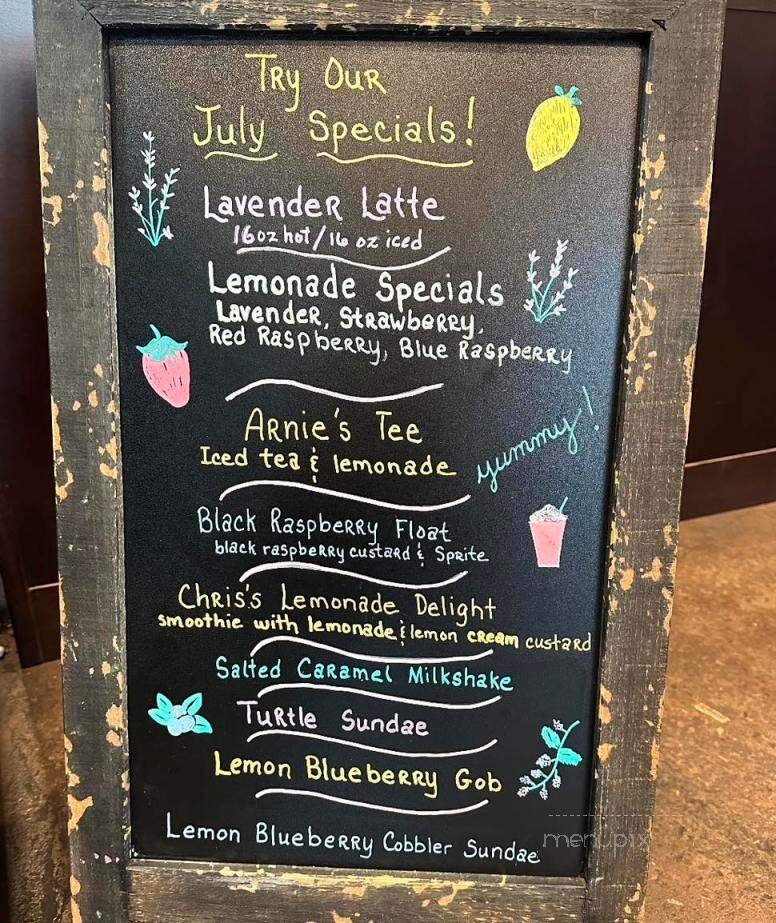 Try Our
July Specials!
Lavender Latte
16oz hot/16 oz iced
Lemonade Specials
Lavender, Strawberry,
Red Raspberry, Blue Raspberry
Arnie's Tee
Iced tea & lemonade
yummy!
Black Raspberry Float
black raspberry custard & Sprite
Chris's Lemonade Delight
smoothie with lemonade & lemon cream custard
Salted Caramel Milkshake
Turtle Sundae
Lemon Blueberry Gob
Lemon Blueberry Cobbler Sundae
menupix